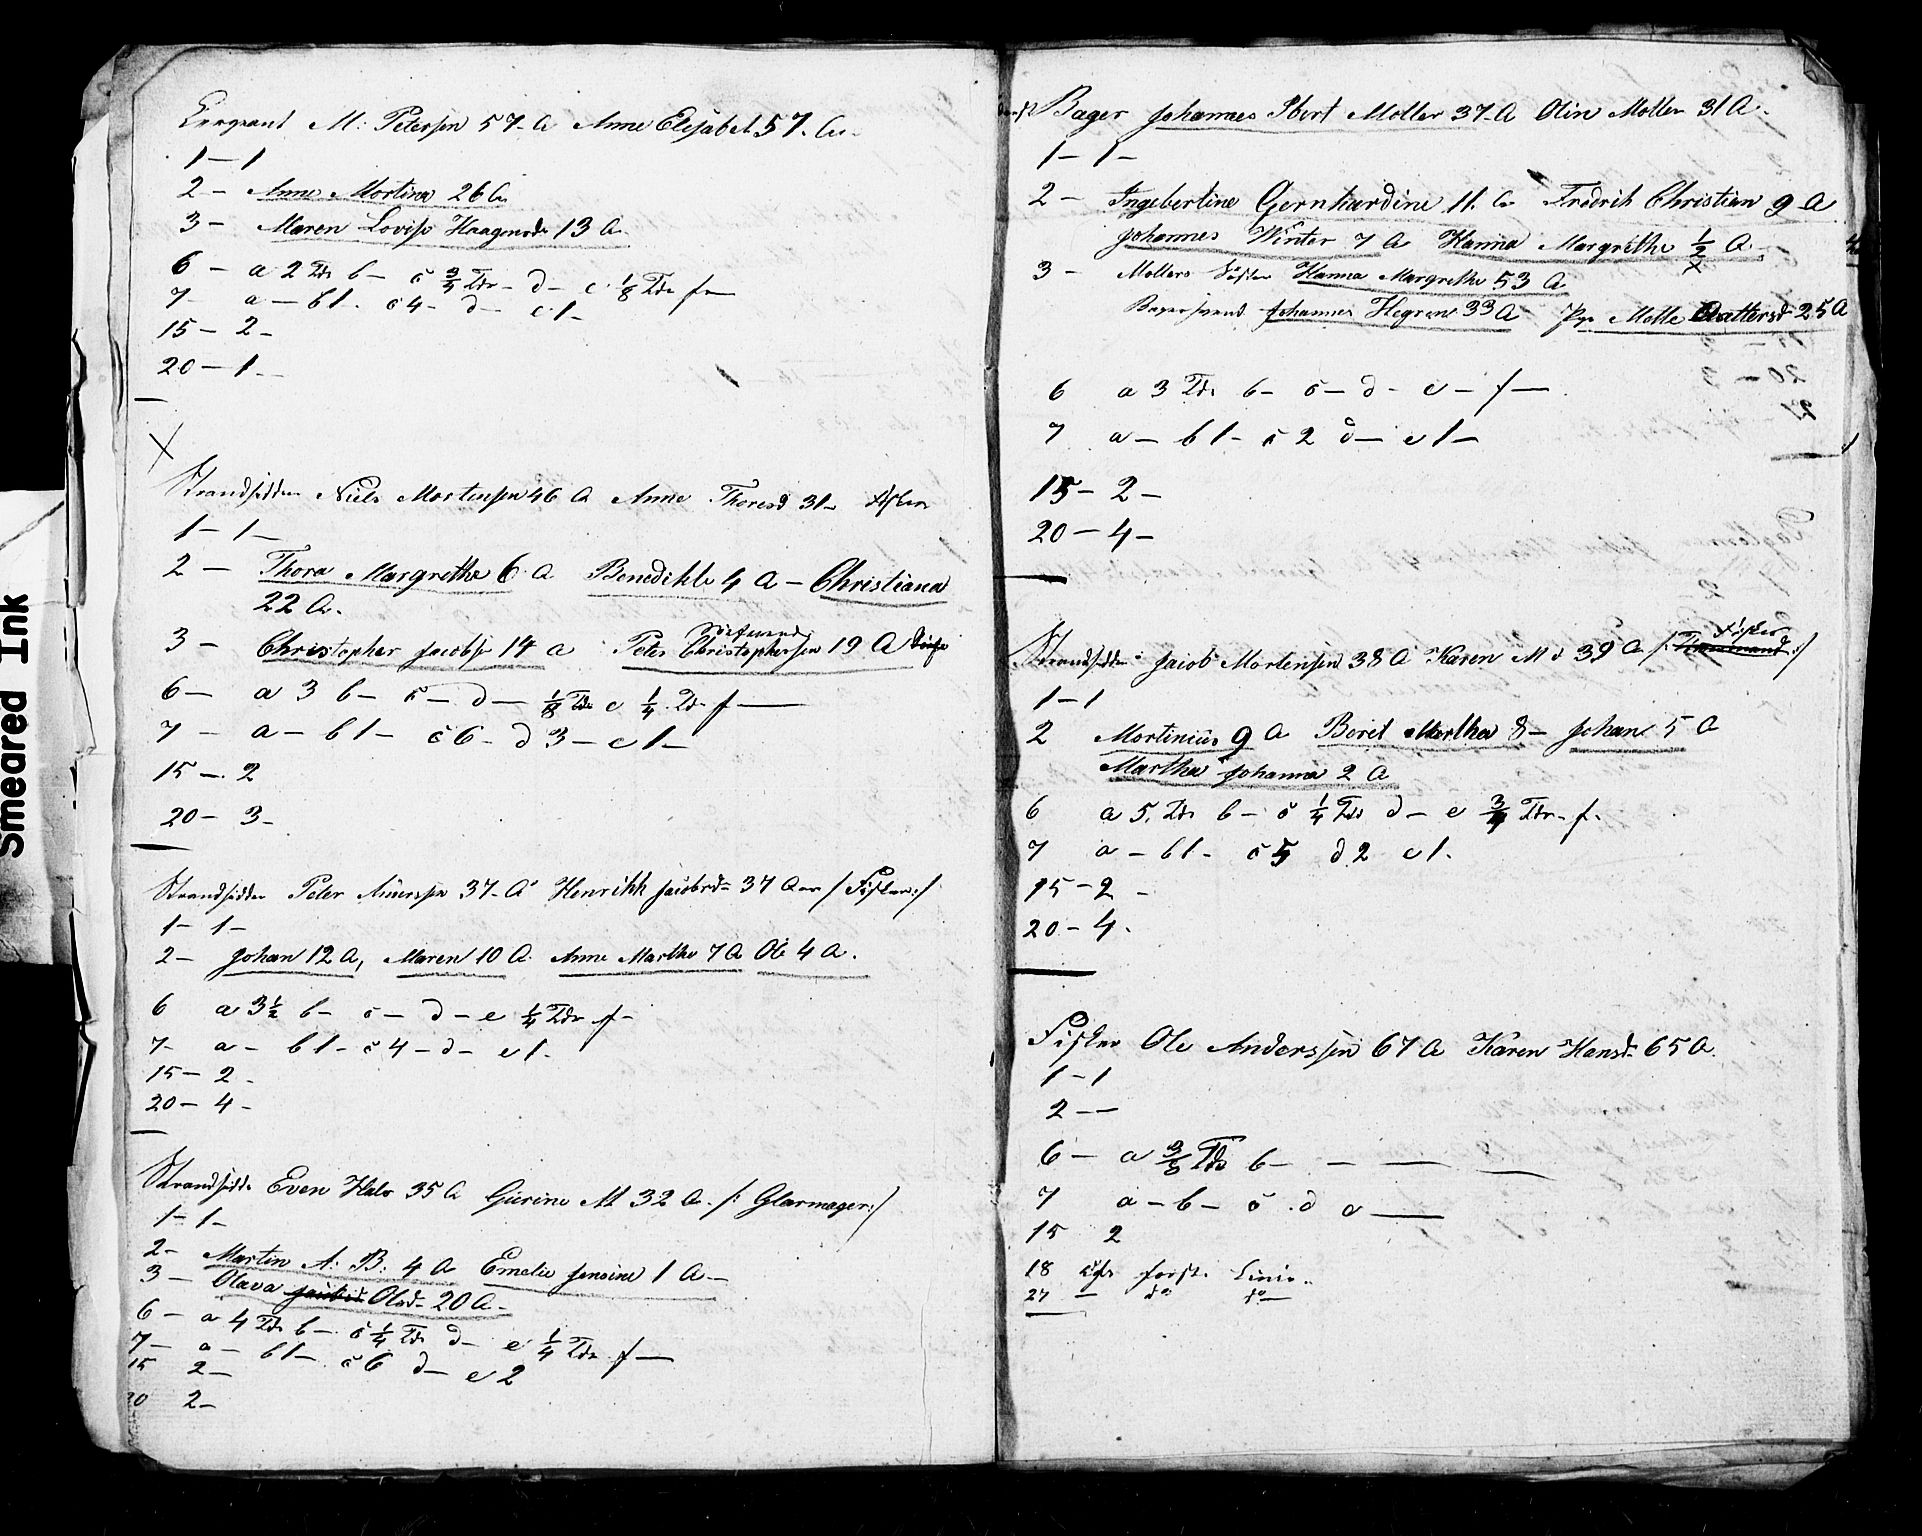 Sergeant M: Petersen 57 A Anne Elisabet 57. A
1 — 1
2 — Anne Mortina 26 A
3 — Maren Lovise Haagensdr 13 A
6 — a 2 Tdr b — c 3/4 Tdr — d — e 1/8 Tdr f —
7 — a — b 1 . c 4 — d — e 1 —
15 — 2 —
20 — 1 —
X
Strandsidder Niels Mortensen 46 A Anne Thoresd 31 — Fisker
1 — 1 —
2 — Thora Margrethe 6 A Benedikte 4 A — Christiana
22 A.
3 — Christopher Jacobsen 14 A Peter Christophersen 19 A
6 — a 3 b — c — d — 1/8 Tdr e 1/4 Tdr f —
7 — a — b 1 — c 6 — d 3 — e 1 —
15 — 2
20 — 3 —
Strandsidder Peter 37 A Henrikk Jacobsd 37 A /: Fisker :/
1 — 1 —
2 — Johan 12 A, Maren 10 A. Anne Marthe 7 A Ole 4 A.
6 a 3 1/2 b — c — d — e 1/4 Tdr f —
7 — a — b 1 — c 4 — d — e 1 —
15 — 2 —
20 — 4 —
Strandsidder Even 35 A Gurine M 32 A. /: Glarmager :/
1 — 1 —
2 — Martin A: B: 4 A Emelie Jensine 1 A —
3 — Olava Olsd 20 A —
6 — a 4 Tdr b — c 1/4 Tdr d — e 1/4 Tdr f —
7 — a — b 1 — c 6 d — e 2
15 2 —
20 2 —
Bager Johannes Møller 37 A Olin Møller 31 A.
1 — 1 —
2 — Ingebertine Gernhardine 11. A Fredrik Christian 9 A
Johannes Winter 7 A Hanna Margrethe 1/2 A.
3 — Møllers Søster Hanna Margrethe 53 A
Bagersvend Johannes Hegren 33 A Pige 25 A
6 a 3 Tdr b — c — d — e — f —
7 a — b 1 — c 2 d — e 1 —
15 — 2 —
20 — 4 —
Fisker
Strandsidder Jacob Mortensen 38 A Karen M d 39 A /: :/
1 — 1
2 Mortinius 9 A Beret Martha 8 — Johan 5 A
Martha Johanna 2 A
6 a 5. Tdr b — c 1/4 Tdr d — e 3/4 Tdr — f.
7 a — b 1 — c 5 d 2 e 1.
15 — 2 —
20 — 4.
Fisker Ole Anderssen 67 A Karen Hansd 65 A.
1 — 1
2 — —
6 — a 3/8 Tdr b — — — —
7 a — b — c . d e —
15 2
18 første Linie
27 — do do
Smeared Ink